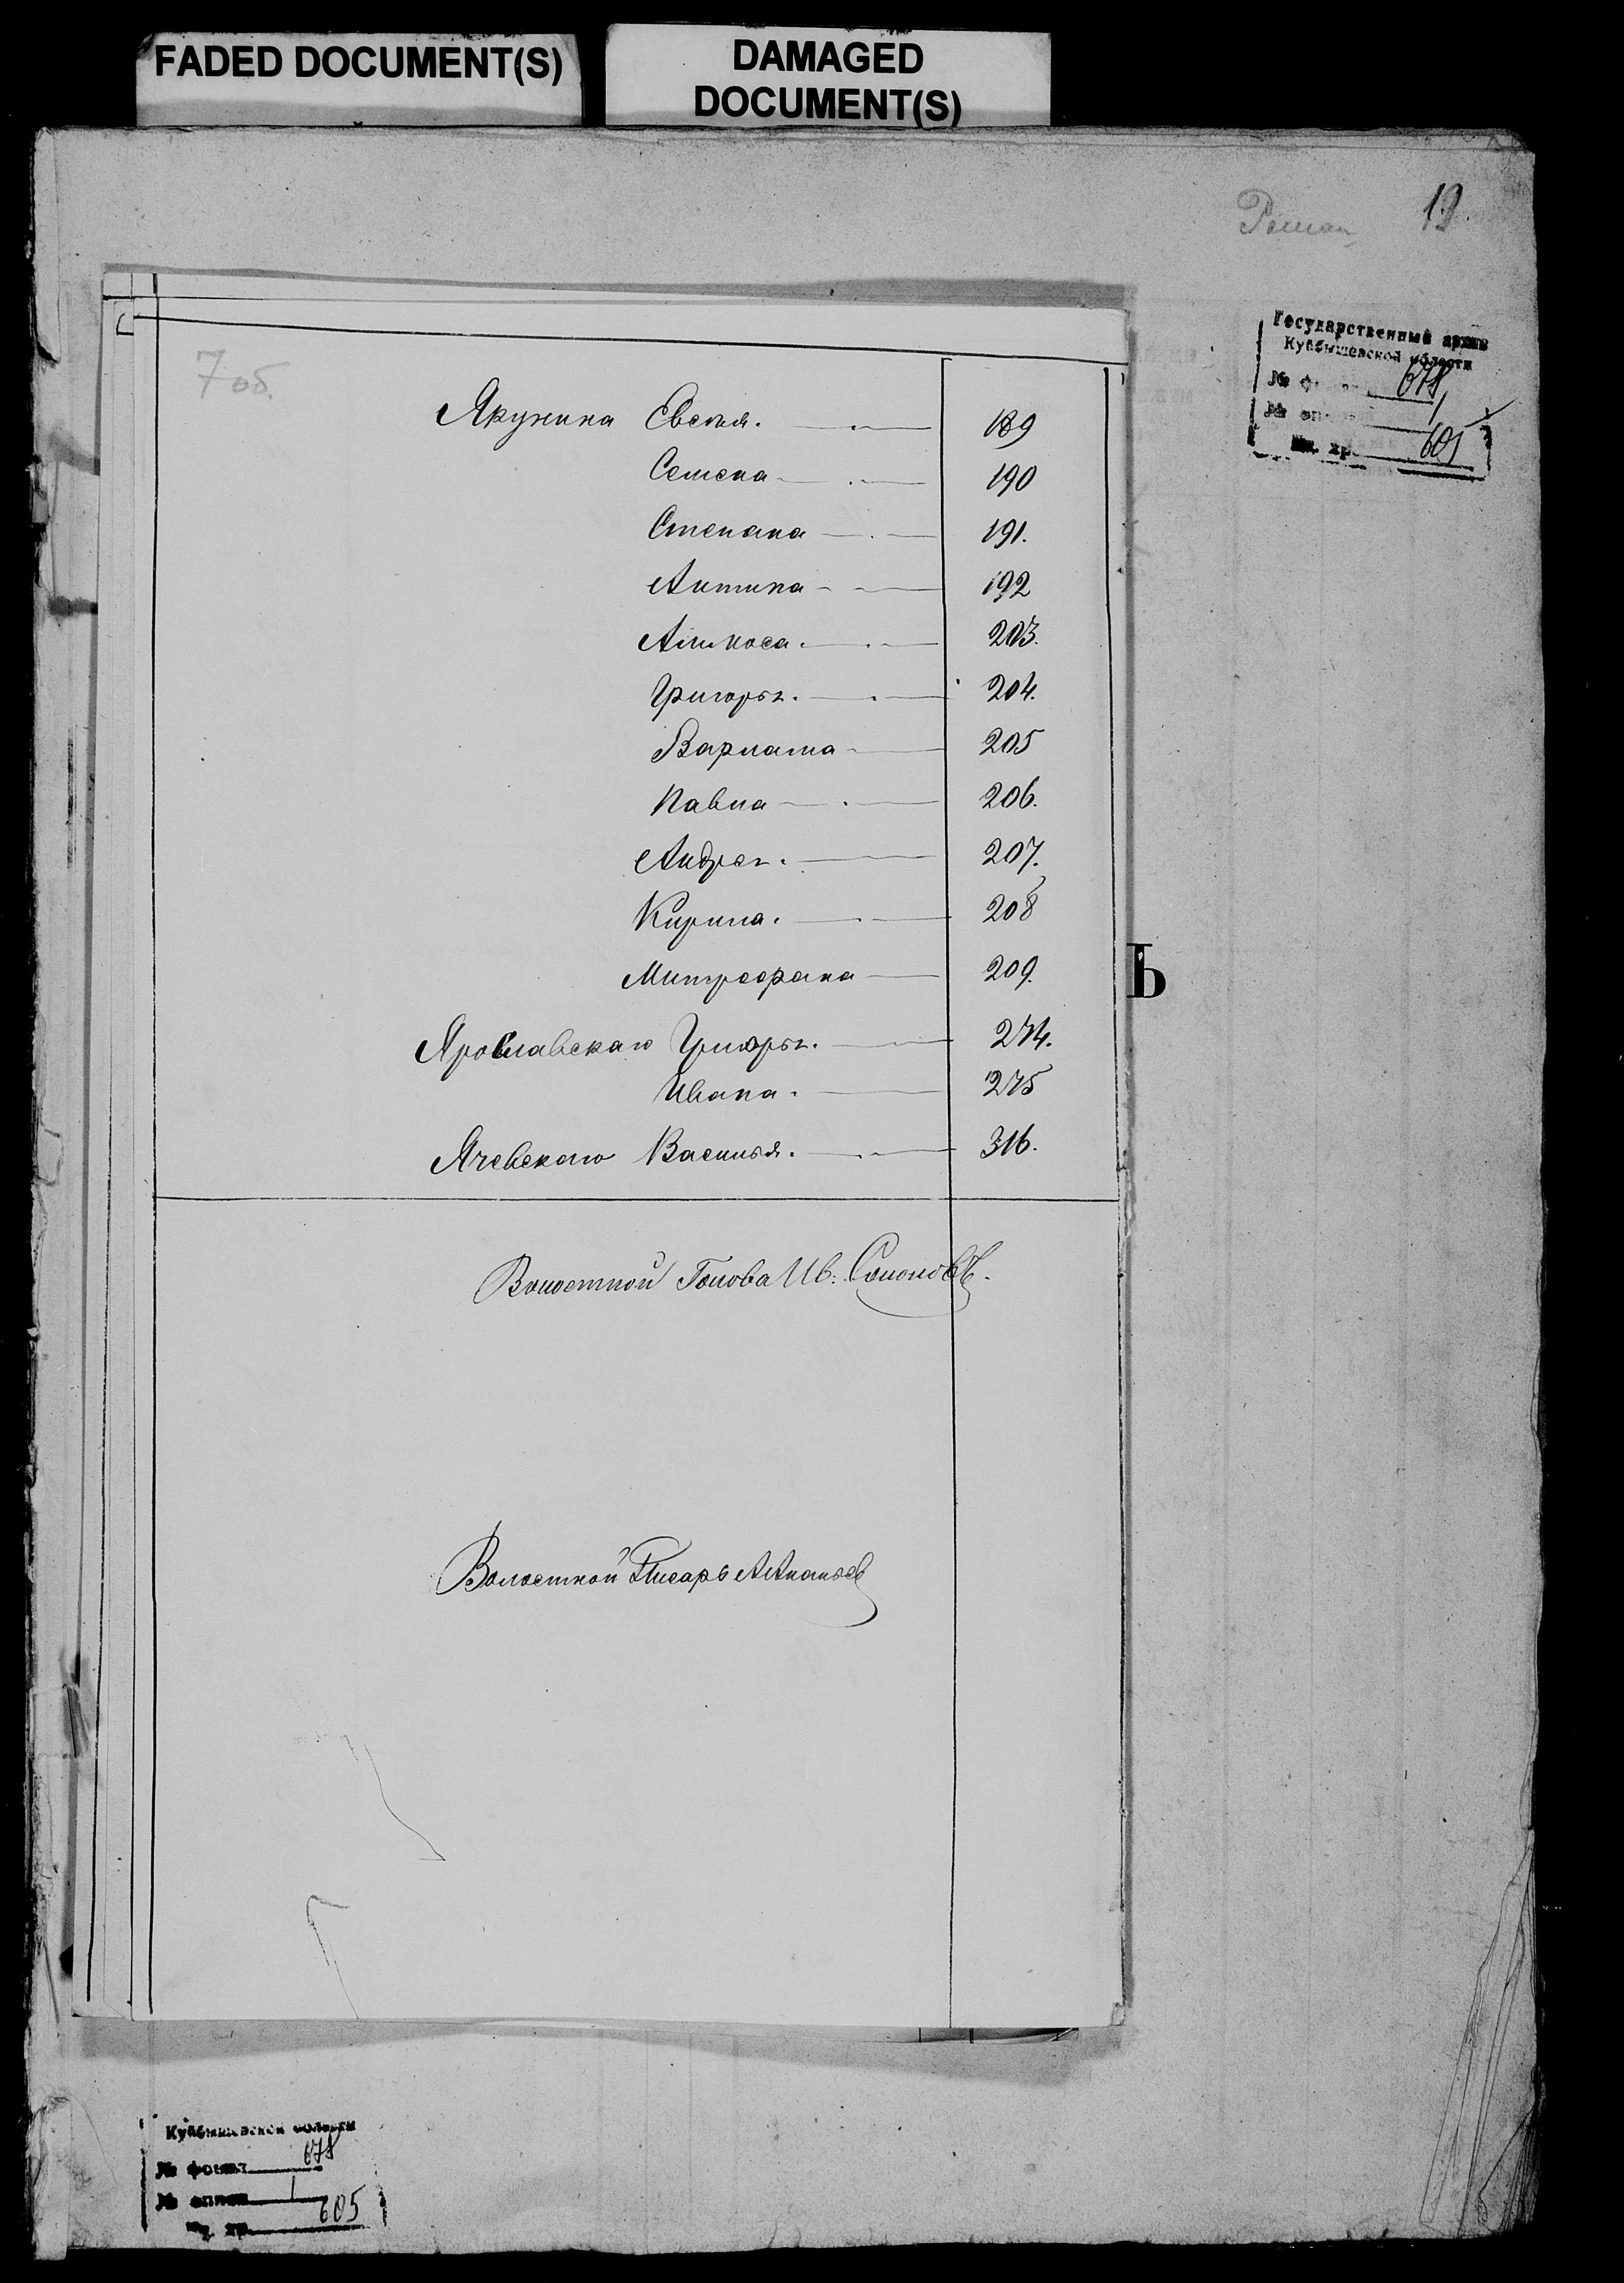 FADED DOCUMENT(S)
DAMAGED
DOCUMENT(S)
19.
Государственный архив
Куйбышевской области
№ ф 678
№ оп 1
хр. 605
7 об.
Якунина Евсѣя. 189
Семена 190
Степана 191.
Антипа 192
Амоса 203.
Григорья. 204.
Варлама 205
Павла 206.
Андрея. 207.
Кирила. 208
Митрофана 209.
Ярославскаго Григорья. 274.
Ивана. 275
Ячевскаго Василья. 316.
Ъ
Волостной Голова Ив: Соколовъ.
Волостной Писарь А Ананьев
Куйбышевской области
№ фонда 678
№ описи 1
хр. 605